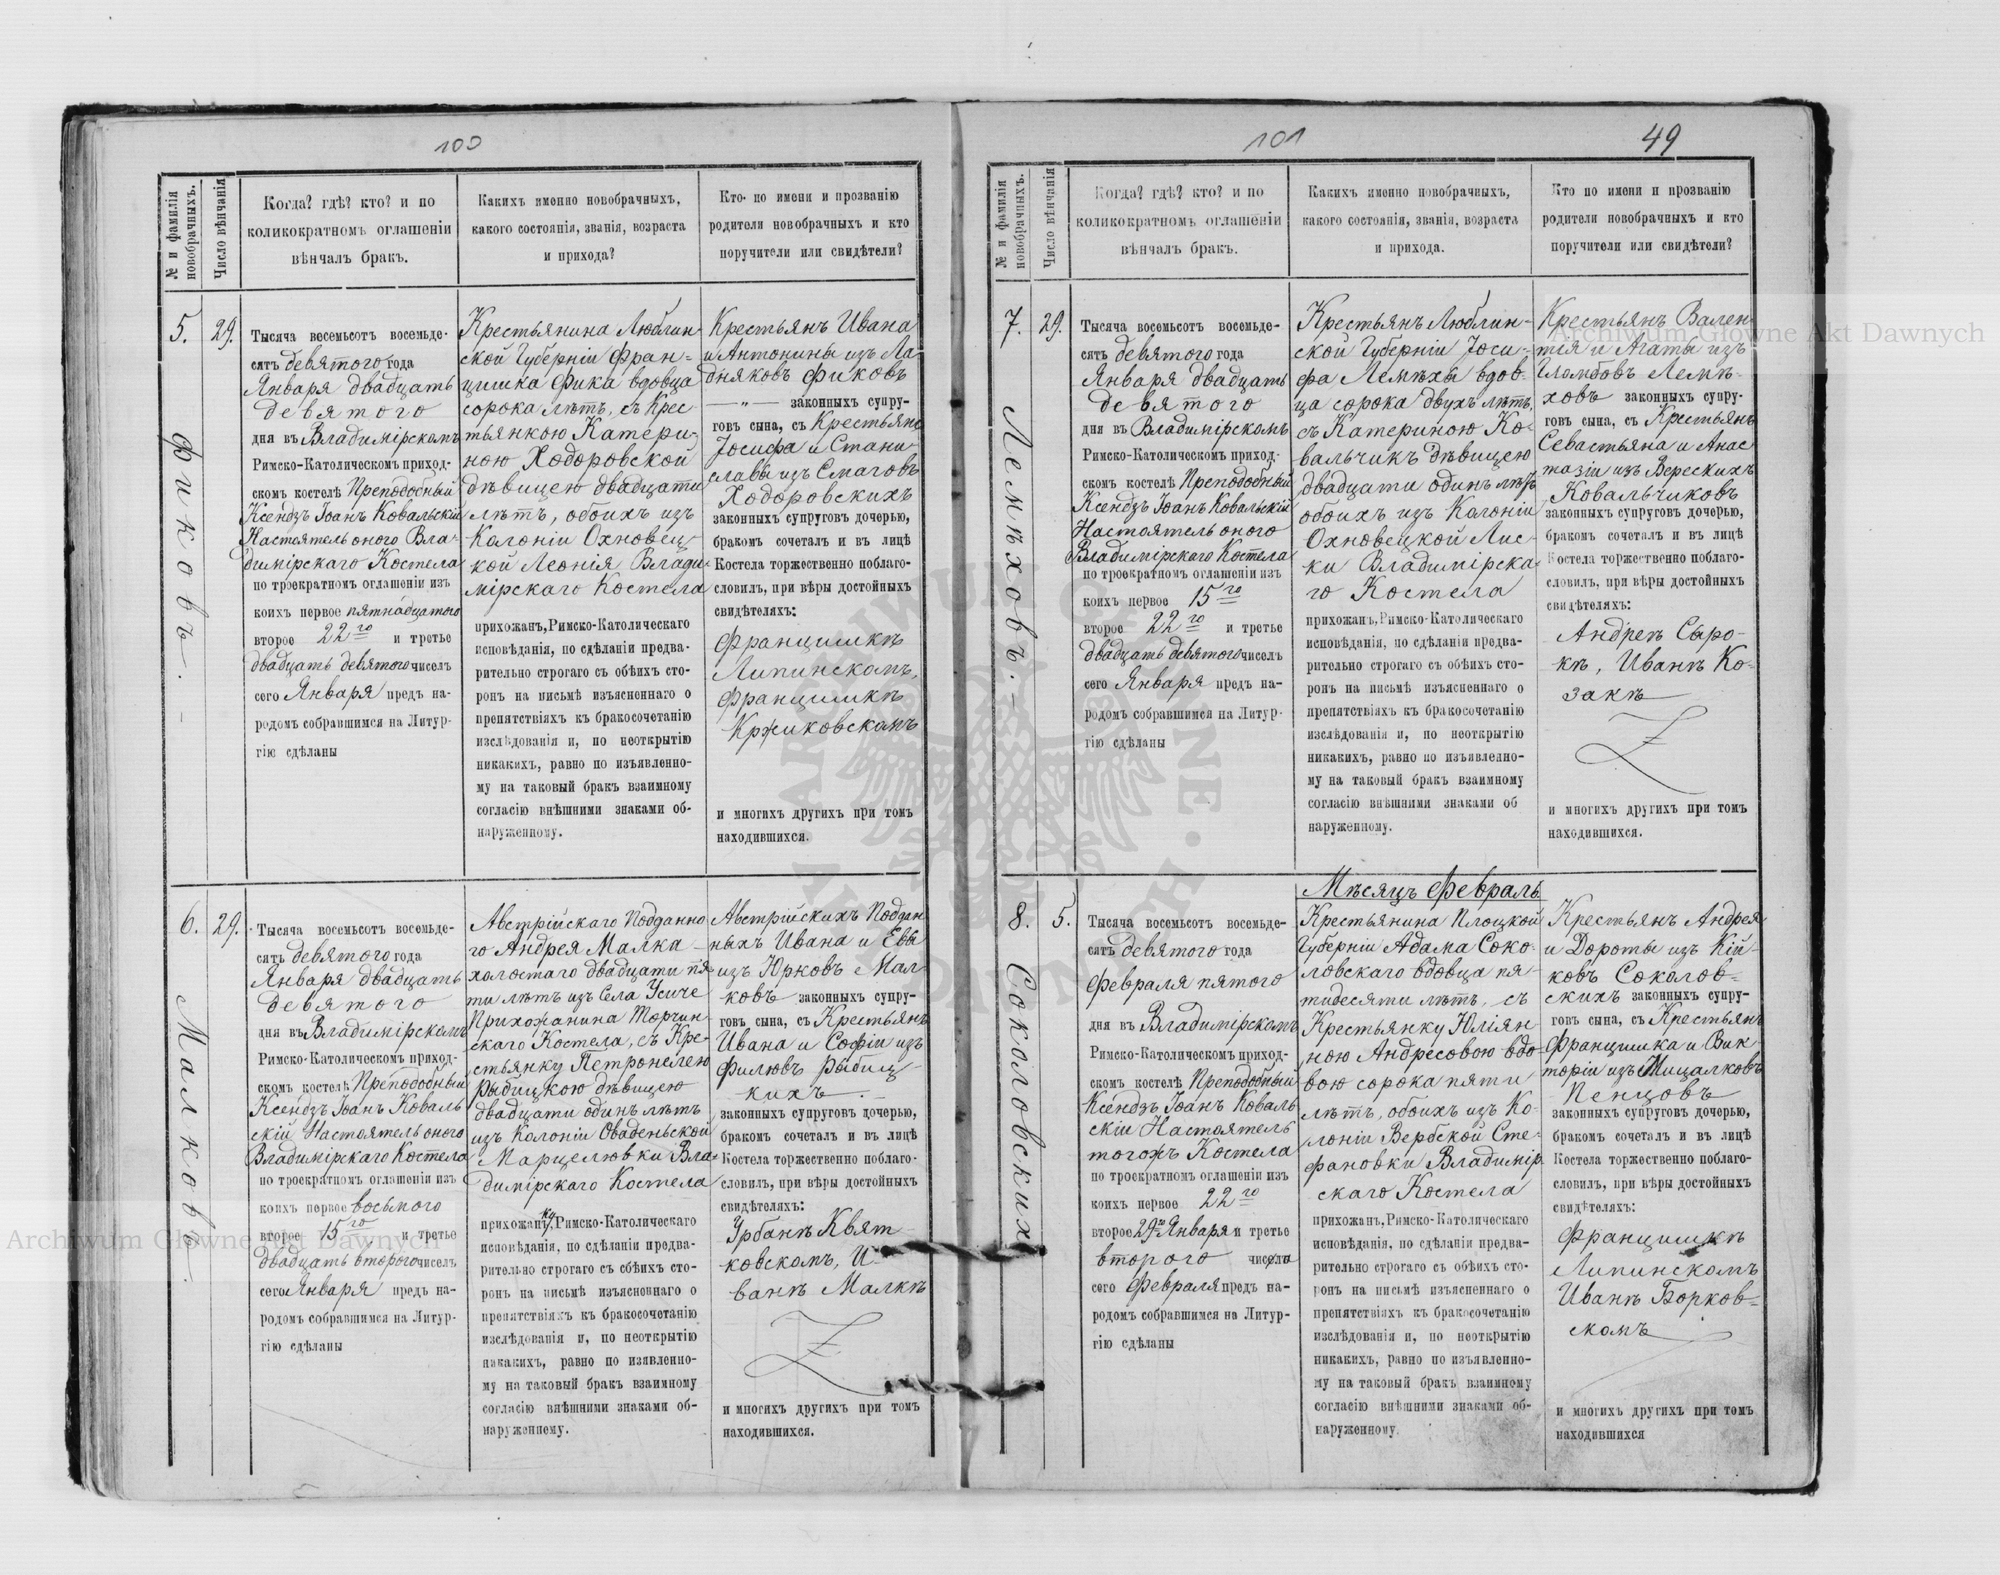 100
№ и фамилія новобрачныхъ.
Число вѣнчанія
Когда? гдѣ? кто? и по
коликократномъ оглашеніи
вѣнчалъ бракъ.
Какихъ именно новобрачныхъ,
какого состоянія, званія, возраста
и прихода?
Кто по имени и прозванію
родители новобрачныхъ и кто
поручители или свидѣтели?
5.
Фиковъ.
29.
Тысяча восемьсотъ восемьде-
сятъ девятого года
Января двадцать
девятого
дня въ Владимірскомъ
Римско-Католическомъ приход-
скомъ костелѣ Преподобный
Ксендзъ Іоанъ Ковальскій
Настоятель оного Вла-
димірскаго Костела
по троекратномъ оглашеніи изъ
коихъ первое пятнадцатого
второе 22го и третье
двадцать девятого чиселъ
сего Января предъ на-
родомъ собравшимся на Литур-
гію сдѣланы
Крестьянина Люблин-
ской Губерніи Фран-
цишка Фика вдовца
сорока лѣтъ, съ Крес-
тьянкою Катери-
ною Ходоровской
дѣвицею двадцати
лѣтъ, обоихъ изъ
Колоніи Охновец-
кой Леонія Влади-
мірскаго Костела
прихожанъ, Римско-Католическаго
исповѣданія, по сдѣланіи предва-
рительно строгаго съ обѣихъ сто-
ронъ на письмѣ изъясненнаго о
препятствіяхъ къ бракосочетанію
изслѣдованія и, по неоткрытію
никакихъ, равно по изъявленно-
му на таковый бракъ взаимному
согласію внѣшними знаками об-
наруженному.
Крестьянъ Ивана
и Антонины изъ Ла-
дняковъ Фиковъ
— " — законныхъ супру-
говъ сына, съ Крестьянъ
Іосифа и Стани-
славы изъ Смаговъ
Ходоровскихъ
законныхъ супруговъ дочерью,
бракомъ сочеталъ и въ лицѣ
Костела торжественно поблаго-
словилъ, при вѣры достойныхъ
свидѣтеляхъ:
Францишкѣ
Липинскомъ,
Францишкѣ
Кржиковскомъ
и многихъ другихъ при томъ
находившихся.
6.
Малковъ.
29.
Тысяча восемьсотъ восемьде-
сятъ девятого года
Января двадцать
девятого
дня въ Владимірскомъ
Римско-Католическомъ приход-
скомъ костелѣ Преподобный
Ксендзъ Іоанъ Коваль
скій Настоятель оного
Владимірскаго Костела
по троекратномъ оглашеніи изъ
коихъ первое восьмого
второе 15го и третье
двадцать второго чиселъ
сего Января предъ на-
родомъ собравшимся на Литур-
гію сдѣланы
Австрійскаго Подданно
го Андрея Малка -
холостаго двадцати пя-
ти лѣтъ изъ Села Усиче
Прихожанина Торчин-
скаго Костела, съ Кре-
стьянку Петронелею
Рыбицкою дѣвицею
двадцати одинъ лѣтъ
изъ Колоніи Оваденьской
Марцелювки Вла-
димірскаго Костела
прихожанку, Римско-Католическаго
исповѣданія, по сдѣланіи предва-
рительно строгаго съ обѣихъ сто-
ронъ на письмѣ изъясненнаго о
препятствіяхъ къ бракосочетанію
изслѣдованія и, по неоткрытію
никакихъ, равно по изявленно-
му на таковый бракъ взаимному
согласію внѣшними знаками об-
наруженному.
Австрійскихъ Поддан
ныхъ Ивана и Евы
изъ Юрковъ Мал-
ковъ законныхъ супру-
говъ сына, съ Крестьянъ
Ивана и Софіи изъ
Филювъ Рыбиц-
кихъ.-
законныхъ супруговъ дочерью,
бракомъ сочеталъ и въ лицѣ
Костела торжественно поблаго-
словилъ, при вѣры достойныхъ
свидѣтеляхъ:
Урбанѣ Квят-
ковскомъ, И-
ванѣ Малкѣ
и многихъ другихъ при томъ
находившихся.
101
49
№ и фамилія новобрачныхъ.
Число вѣнчанія
Когда? гдѣ? кто? и по
коликократномъ оглашеніи
вѣнчалъ бракъ.
Какихъ именно новобрачныхъ,
какого состоянія, званія, возраста
и прихода.
Кто по имени и прозванію
родители новобрачныхъ и кто
поручители или свидѣтели?
7.
Лемѣховъ.-
29.
Тысяча восемьсотъ восемьде-
сятъ девятого года
Января двадцать
девятого
дня въ Владимірскомъ
Римско-Католическомъ приход-
скомъ костелѣ Преподобный
Ксендзъ Іоанъ Ковальскій
Настоятель оного
Владимірскаго Костела
по троекратномъ оглашеніи изъ
коихъ первое 15го
второе 22го и третье
двадцать девятого чиселъ
сего Января предъ на-
родомъ собравшимся на Литур-
гію сдѣланы
Крестьянъ Люблин-
ской Губерніи Іоси-
фа Лемѣхы вдов-
ца сорока двухъ лѣтъ,
съ Катериною Ко-
вальчикъ дѣвицею
двадцати одинъ лѣтъ
обоихъ изъ Колоніи
Охновецкой Лис-
ки Владимірска-
го Костела
прихожанъ, Римско-Католическаго
исповѣданія, по сдѣланіи предва-
рительно строгаго съ обѣихъ сто-
ронъ на письмѣ изъясненнаго о
препятствіяхъ къ бракосочетанію
изслѣдованія и, по неоткрытію
никакихъ, равно по изъявленно-
му на таковый бракъ взаимному
согласію внѣшними знаками об
наруженному.
Крестьянъ Вален-
тія и Агаты изъ
Гломбовъ Лемѣ-
ховъ законныхъ супру-
говъ сына, съ Крестьянъ
Севастьяна и Анас
тазіи изъ Верескихъ
Ковальчиковъ
законныхъ супруговъ дочерью,
бракомъ сочеталъ и въ лицѣ
Костела торжественно поблаго-
словилъ, при вѣры достойныхъ
свидѣтеляхъ:
Андреѣ Сыро-
кѣ, Иванѣ Ко-
закѣ
и многихъ другихъ при томъ
находившихся.
8.
Соколовскихъ
5.
Мѣсяцъ Февраль
Тысяча восемьсотъ восемьде-
сятъ девятого года
Февраля пятого
дня въ Владимірскомъ
Римско-Католическомъ приход-
скомъ костелѣ Преподобный
Ксендзъ Іоанъ Коваль
скій Настоятель
тогожъ Костела
по троекратномъ оглашеніи изъ
коихъ первое 22го
второе 29го Января и третье
второго числа
сего Февраля предъ на-
родомъ собравшимся на Литур-
гію сдѣланы
Крестьянина Плоцкой
Губерніи Адама Соко-
ловскаго вдовца пя-
тидесяти лѣтъ, съ
Крестьянку Юліян-
ною Андресовою вдо-
вою сорока пяти
лѣтъ, обоихъ изъ Ко-
лоніи Вербской Сте-
фановки Владимір
скаго Костела
прихожанъ, Римско-Католическаго
исповѣданія, по сдѣланіи предва-
рительно строгаго съ обѣихъ сто-
ронъ на письмѣ изъясненнаго о
препятствіяхъ къ бракосочетанію
изслѣдованія и, по неоткрытію
никакихъ, равно по изъявленно-
му на таковый бракъ взаимному
согласію внѣшними знаками об-
наруженному
Крестьянъ Андрея
и Дороты изъ Кій-
ковъ Соколов-
скихъ законныхъ супру-
говъ сына, съ Крестьянъ
Францишка и Вик-
торіи изъ Мицалковъ
Пенцовъ
законныхъ супруговъ дочерью,
бракомъ сочеталъ и въ лицѣ
Костела торжественно поблаго-
словилъ, при вѣры достойныхъ
свидѣтеляхъ:
Францишкѣ
Липинскомъ
Иванѣ Борков-
скомъ
и многихъ другихъ при томъ
находившихся
Archiwum Główne Akt Dawnych
Archiwum Główne Akt Dawnych